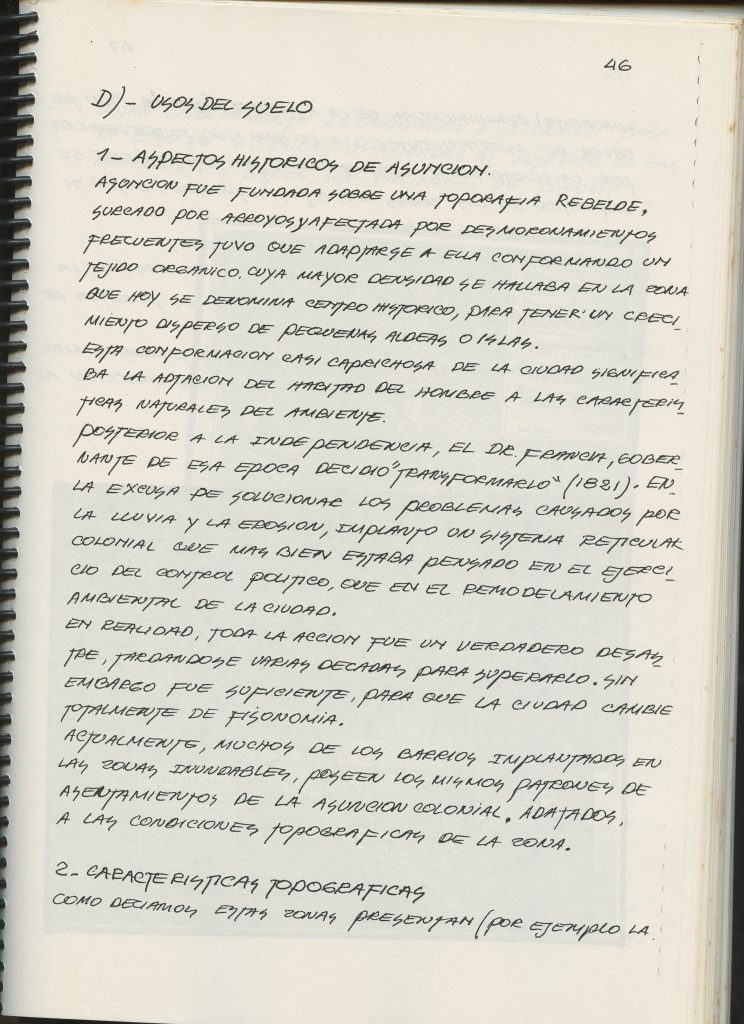 46
D)- USOS DEL SUELO
1- ASPECTOS HISTORICOS DE ASUNCION.
ASUNCION FUE FUNDADA SOBRE UNA TOPOGRAFIA REBELDE,
SURCADO POR ARROYOS Y AFECTADA POR DESMORONAMIENTOS
FRECUENTES TUVO QUE ADAPTARSE A ELLA CONFORMANDO UN
TEJIDO ORGANICO, CUYA MAYOR DENSIDAD SE HALLABA EN LA ZONA
QUE HOY SE DENOMINA CENTRO HISTORICO, PARA TENER UN CRECI-
MIENTO DISPERSO DE PEQUEÑAS ALDEAS O ISLAS.
ESTA CONFORMACION CASI CAPRICHOSA DE LA CIUDAD SIGNIFICA-
BA LA ADTACION DEL HABITAD DEL HOMBRE A LAS CARACTERIS-
TICAS NATURALES DEL AMBIENTE.
POSTERIOR A LA INDEPENDENCIA, EL DR. FRANCIA, GOBER-
NANTE DE ESA EPOCA DECIDIO "TRANSFORMARLO" (1821). EN-
LA EXCUSA DE SOLUCIONAR LOS PROBLEMAS CAUSADOS POR
LA LLUVIA Y LA EROSION, IMPLANTO UN SISTEMA RETICULAR
COLONIAL QUE MAS BIEN ESTABA PENSADO EN EL EJERCI-
CIO DEL CONTROL POLITICO, QUE EN EL REMODELAMIENTO
AMBIENTAL DE LA CIUDAD.
EN REALIDAD, TODA LA ACCION FUE UN VERDADERO DESAS-
TRE, TARDANDOSE VARIAS DECADAS PARA SUPERARLO. SIN
EMBARGO FUE SUFICIENTE, PARA QUE LA CIUDAD CAMBIE
TOTALMENTE DE FISONOMIA.
ACTUALMENTE, MUCHOS DE LOS BARRIOS IMPLANTADOS EN
LAS ZONAS INUNDABLES, POSEEN LOS MISMOS PATRONES DE
ASENTAMIENTOS DE LA ASUNCION COLONIAL. ADATADOS,
A LAS CONDICIONES TOPOGRAFICAS DE LA ZONA.
2- CARACTERISTICAS TOPOGRAFICAS
COMO DECIAMOS ESTAS ZONAS PRESENTAN (POR EJEMPLO LA